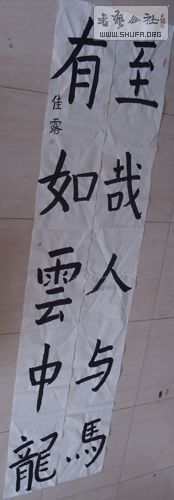 至哉人与馬
有如雲中龍
佳露
書藝公社
www.SHUFA.ORG